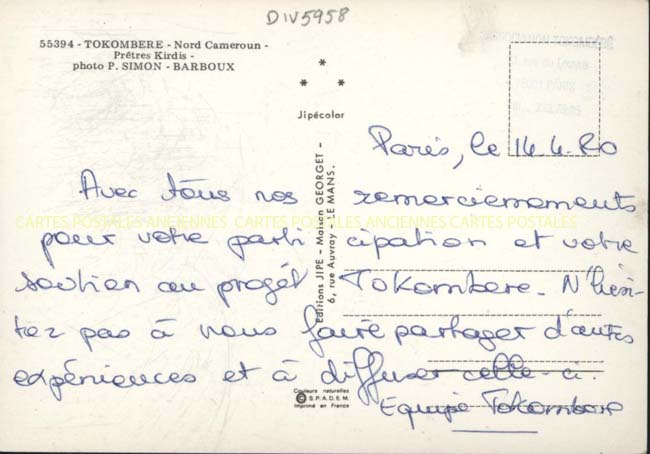 DIV5958
55394 - TOKOMBERE - Nord Cameroun -
Prêtres Kirdis -
photo P. SIMON - BARBOUX
Jipécolor
Paris, le 14.4.80
Avec tous nos remerciements
CARTES POSTALES ANCIENNES CARTES POSTALES ANCIENNES CARTES POSTALES
pour votre participation et votre
soutien au projet Tokombere. N'hési-
tez pas à nous faire partager d'autres
expériences et à diffuser celle-ci.
Equipe Tokombere
Editions JIPE - Maison GEORGET -
6, rue Auvray - LE MANS.
Couleurs naturelles
© S.P.A.D.E.M.
Imprimé en France